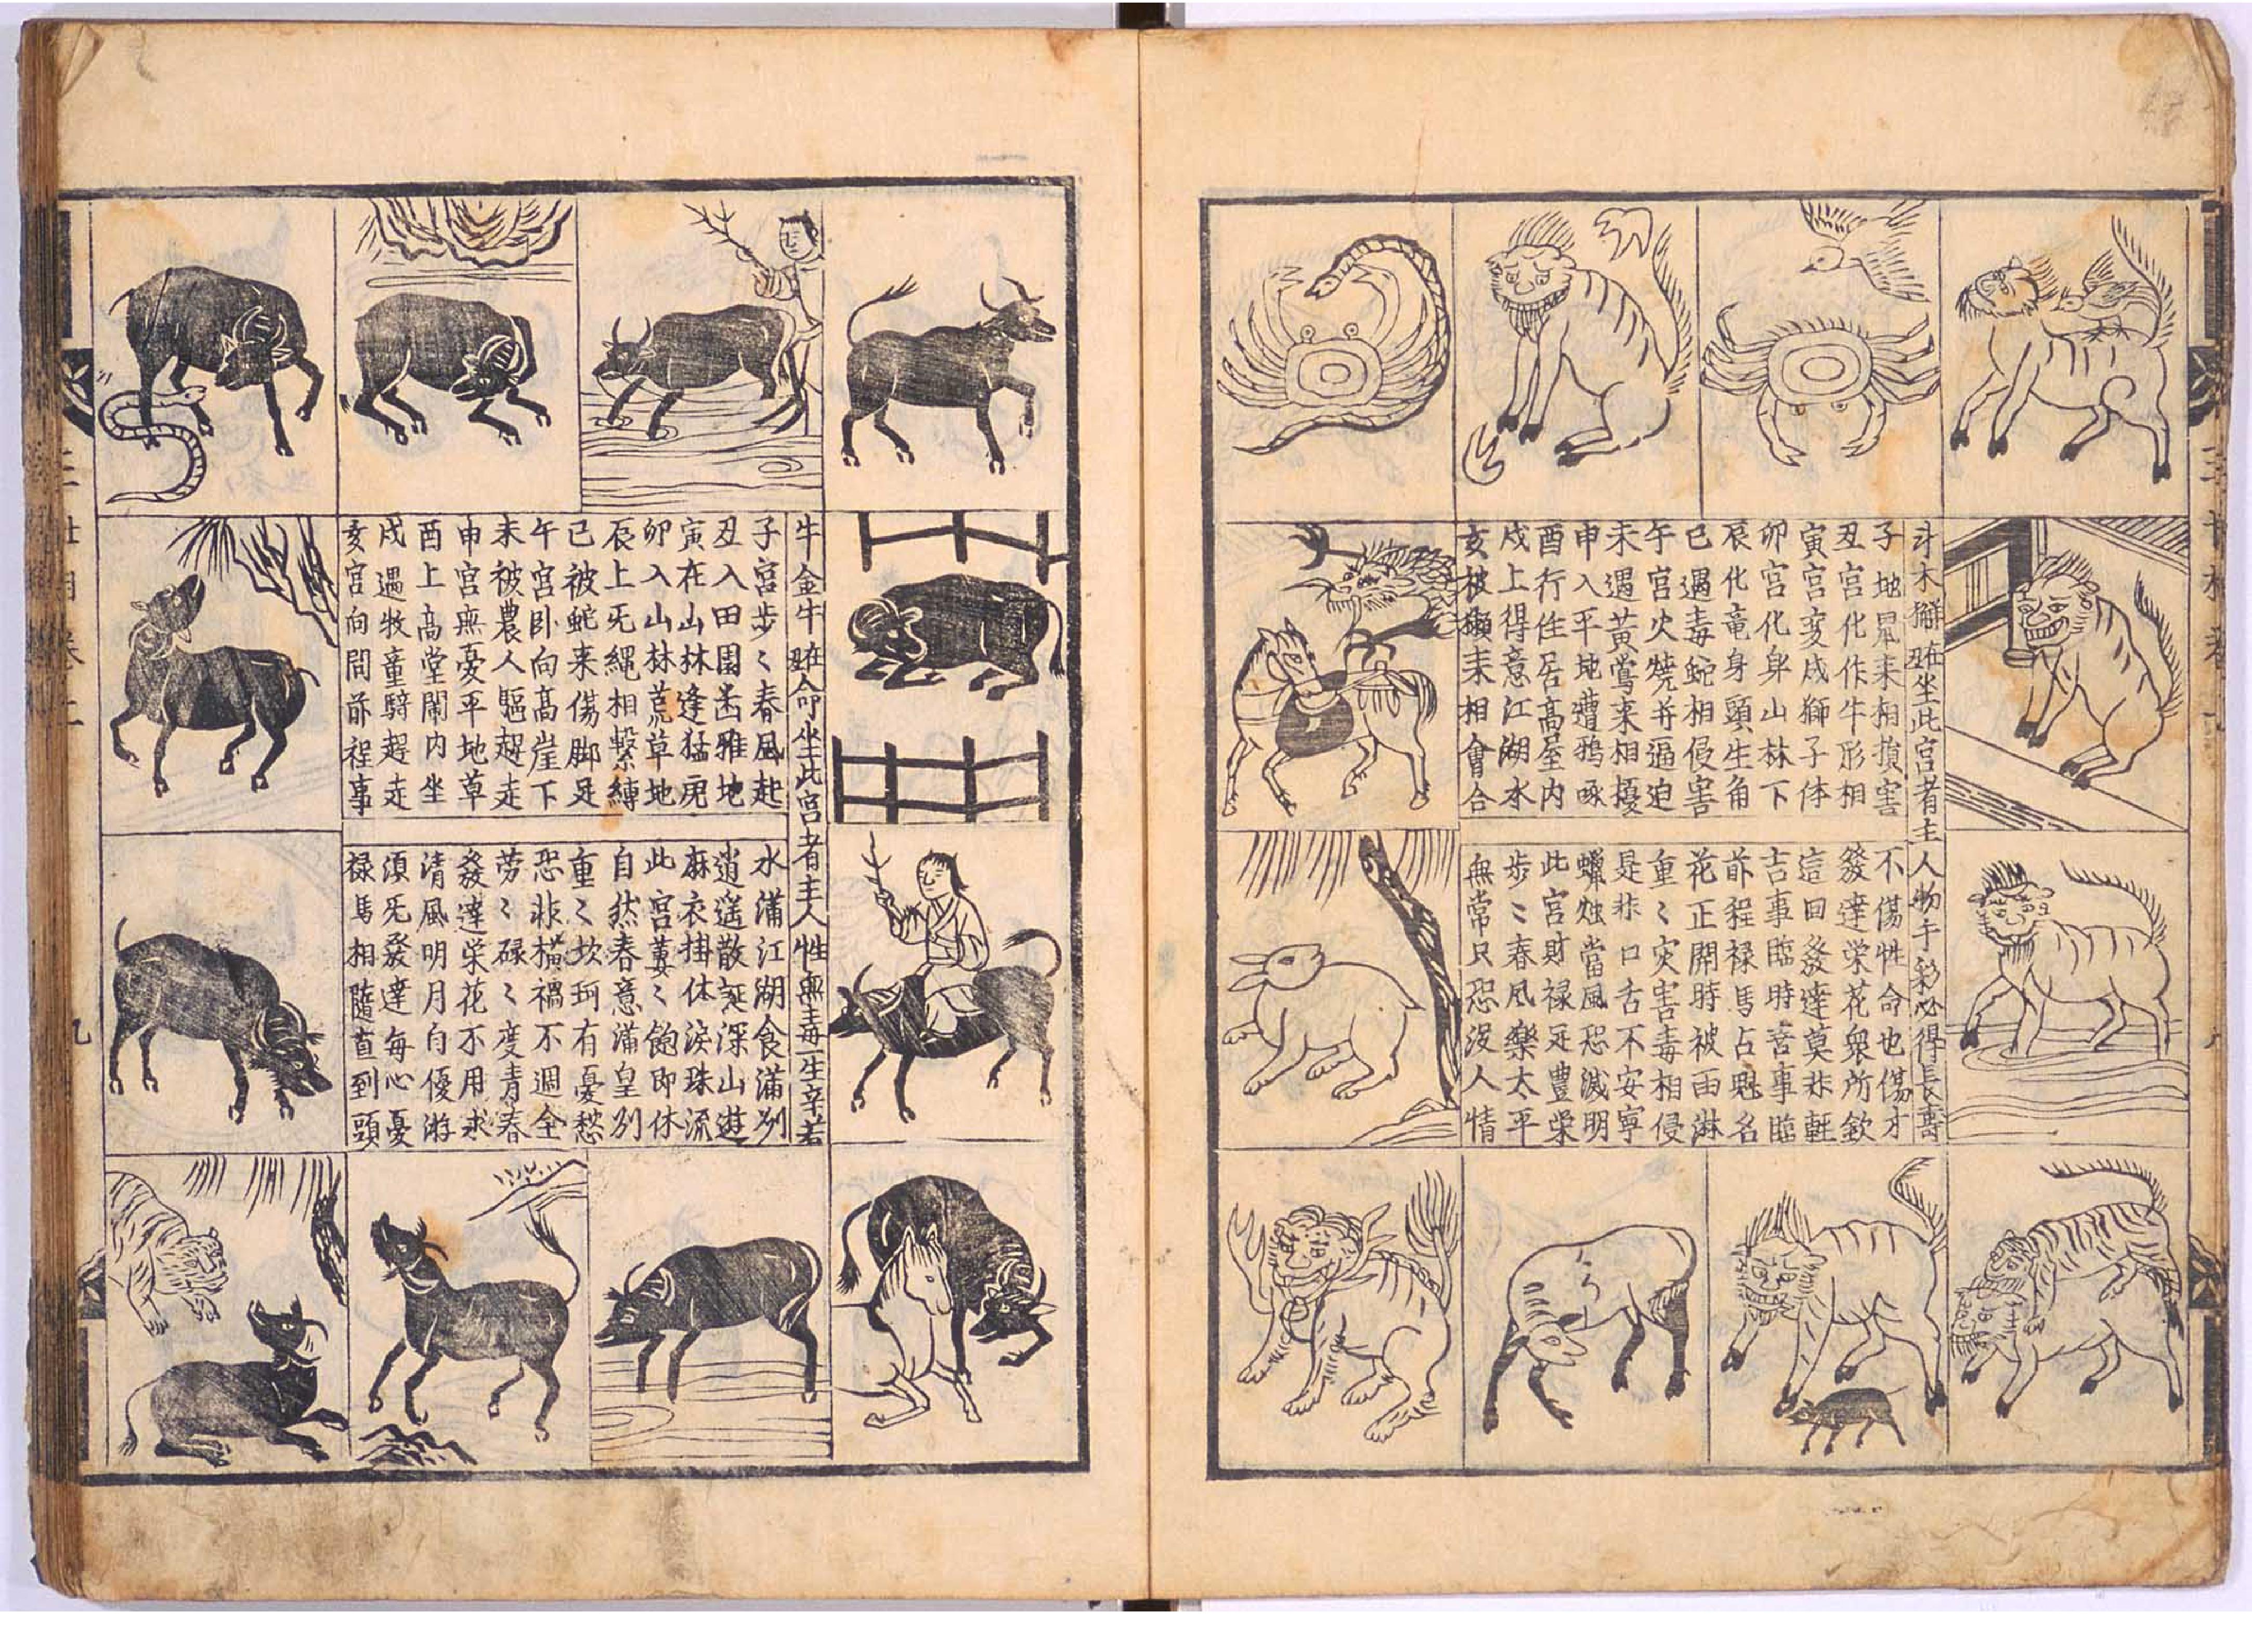 斗木獬在丑坐此宮者主人物手彩必得長壽
子地鼠来相損害
丑宮化作牛形相
寅宮変戍獅子体
卯宮化身山林下
辰化竜身頭生角
巳遇毒蛇相侵害
午宮火燒并逼迫
未遇黃鶯来相擾
申入平地遭鴉啄
酉行住居高屋内
戍上得意江湖水
亥被獺来相會合
不傷性命也傷才
發達栄花衆所欽
這回發達莫非軽
吉事臨時喜事臨
前程禄馬占魁名
花正開時被雨淋
重〻灾害毒相侵
是非口舌不安寧
蠟烛當風恐滅明
此宮財禄足豊栄
步〻春風樂太平
無常只恐没人情
牛金牛在丑命坐此宮者主人性無毒一生辛苦
子宮步〻春風起
丑入田園雅地
寅在山林逢猛虎
卯入山林荒草地
辰上旡繩相繫縳
巳被蛇来傷脚足
午宮卧向高崖下
未被農人驅趕走
申宮無憂平地草
酉上高堂鬧内坐
戍遇牧童騎趕走
亥宮向問前程事
水滿江湖食滿
逍遥散誕深山遊
麻衣掛体淚珠流
此宮萋〻飽即休
自然春意滿皇
重〻坎坷有憂愁
恐非橫禍不週全
劳〻碌〻度青春
發達栄花不用求
清風明月自優游
須旡發達每心憂
禄馬相隨直到頭
九